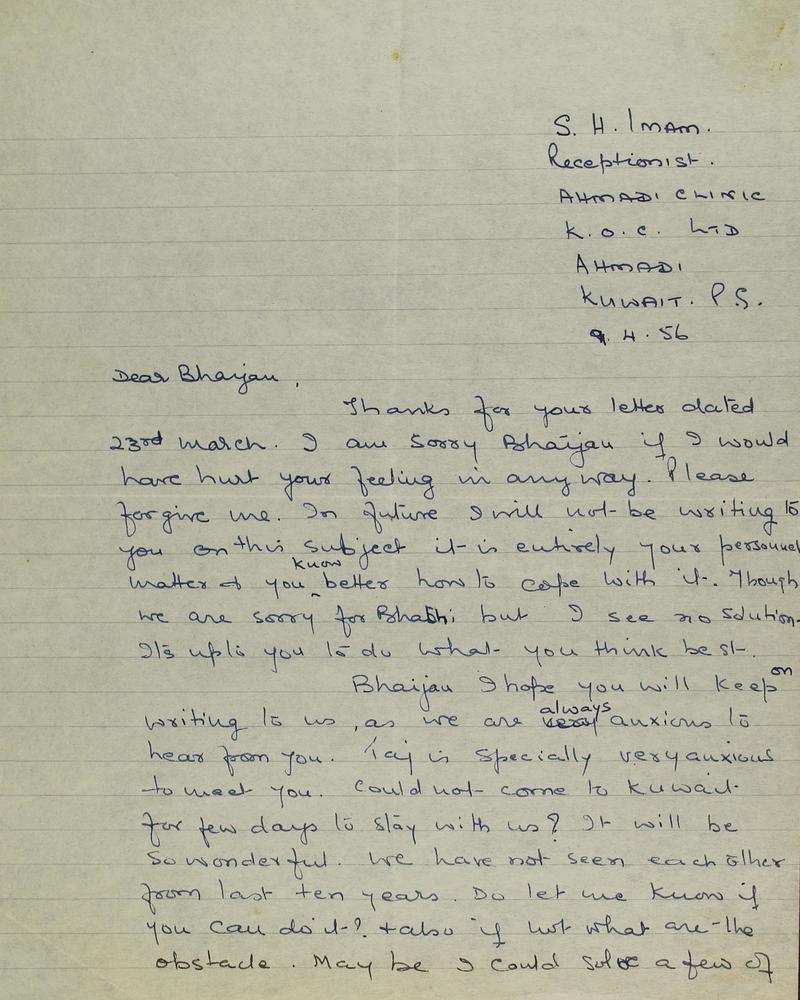 S. H. Imam.
Receptionist.
AHMADI CLINIC
K.O.C. LTD
AHMADI
KUWAIT. P.G.
9.4.56
Dear Bhaijan,
Thanks for your letter dated
23rd march. I am sorry Bhaijan if I would
have hurt your feeling in any way. Please
forgive me. In future I will not be writing to
you on this subject it is entirely your personnel
matter & you know better how to cope with it. Though
we are sorry for Bhabhi but I see no solution.
It's upto you to do what you think best.
Bhaijan I hope you will keep on
writing to us, as we are always anxious to
hear from you. Taj is specially very anxious
to meet you. Could not come to Kuwait
for few days to stay with us? It will be
so wonderful. We have not seen each other
from last ten years. Do let me know if
you can do it? + also if not what are the
obstacle. May be I could solve a few of